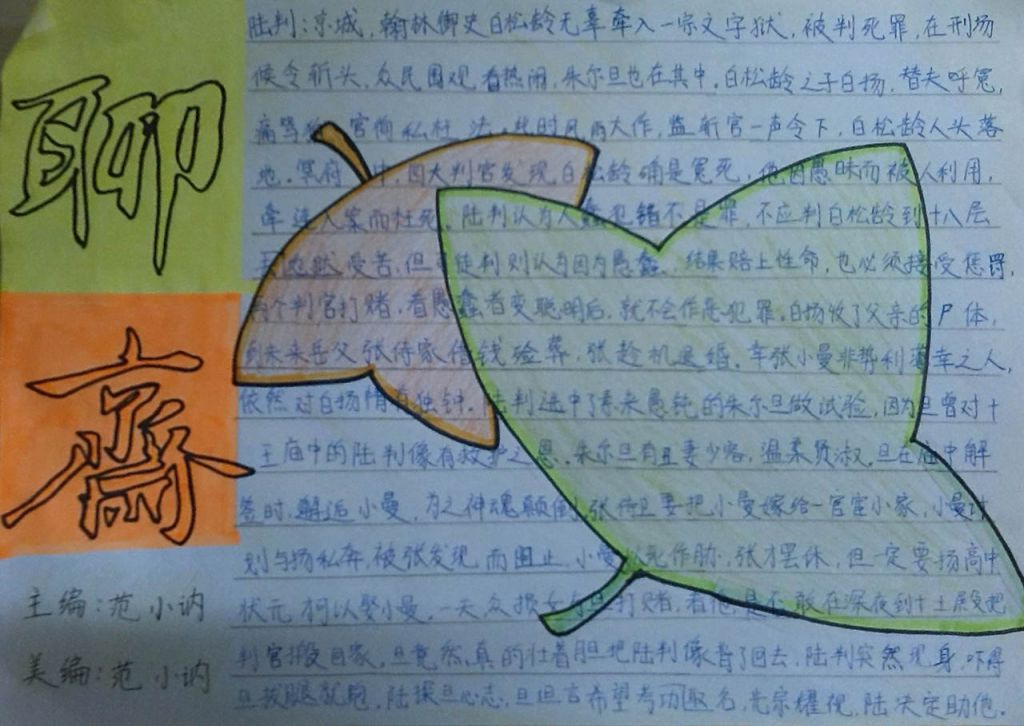 聊
斋
主编：范小讷
美编：范小讷
陆判：京城，翰林御史白松龄无辜牵入一宗文字狱，被判死罪，在刑场
候令斩头，众民围观看热闹，朱尔旦也在其中，白松龄之子白扬，替夫呼冤，
痛骂 官徇私枉法，此时风雨大作，监斩官一声令下，白松龄人头落
地。冥府 中，四大判官发现白松龄确是冤死，他因愚昧而被人利用，
牵连入案而枉死，陆判认为人蠢犯错不是罪，不应判白松龄到十八层
受苦，但 徒判则认为因为愚蠢，结果赔上性命，也必须接受惩罚，
两个判官打赌，看愚蠢者变聪明后，就不会作恶犯罪。白扬收了父亲的尸体，
到未来岳父张侍家借钱殓葬，张趁机退婚。幸张小曼非势利薄幸之人，
依然对白扬情有独钟。陆判选中了素来愚钝的朱尔旦做试验，因为旦曾对十
王庙中的陆判像有救护之恩。朱尔旦有丑妻少容，温柔贤淑。旦在庙中解
签时，邂逅小曼，为之神魂颠倒，张侍 要把小曼嫁给一官宦小家，小曼计
划与扬私奔，被张发现而阻止，小曼以死作胁，张才罢休，但一定要扬高中
状元，才可以娶小曼。一天众损友与旦打赌，看他是否敢在深夜到十王殿把
判官搬回家，旦竟然真的壮着胆把陆判像背了回去，陆判突然现身，吓得
旦拔腿就跑，陆探旦心志，旦坦言希望考功取名，光宗耀祖，陆决定助他。